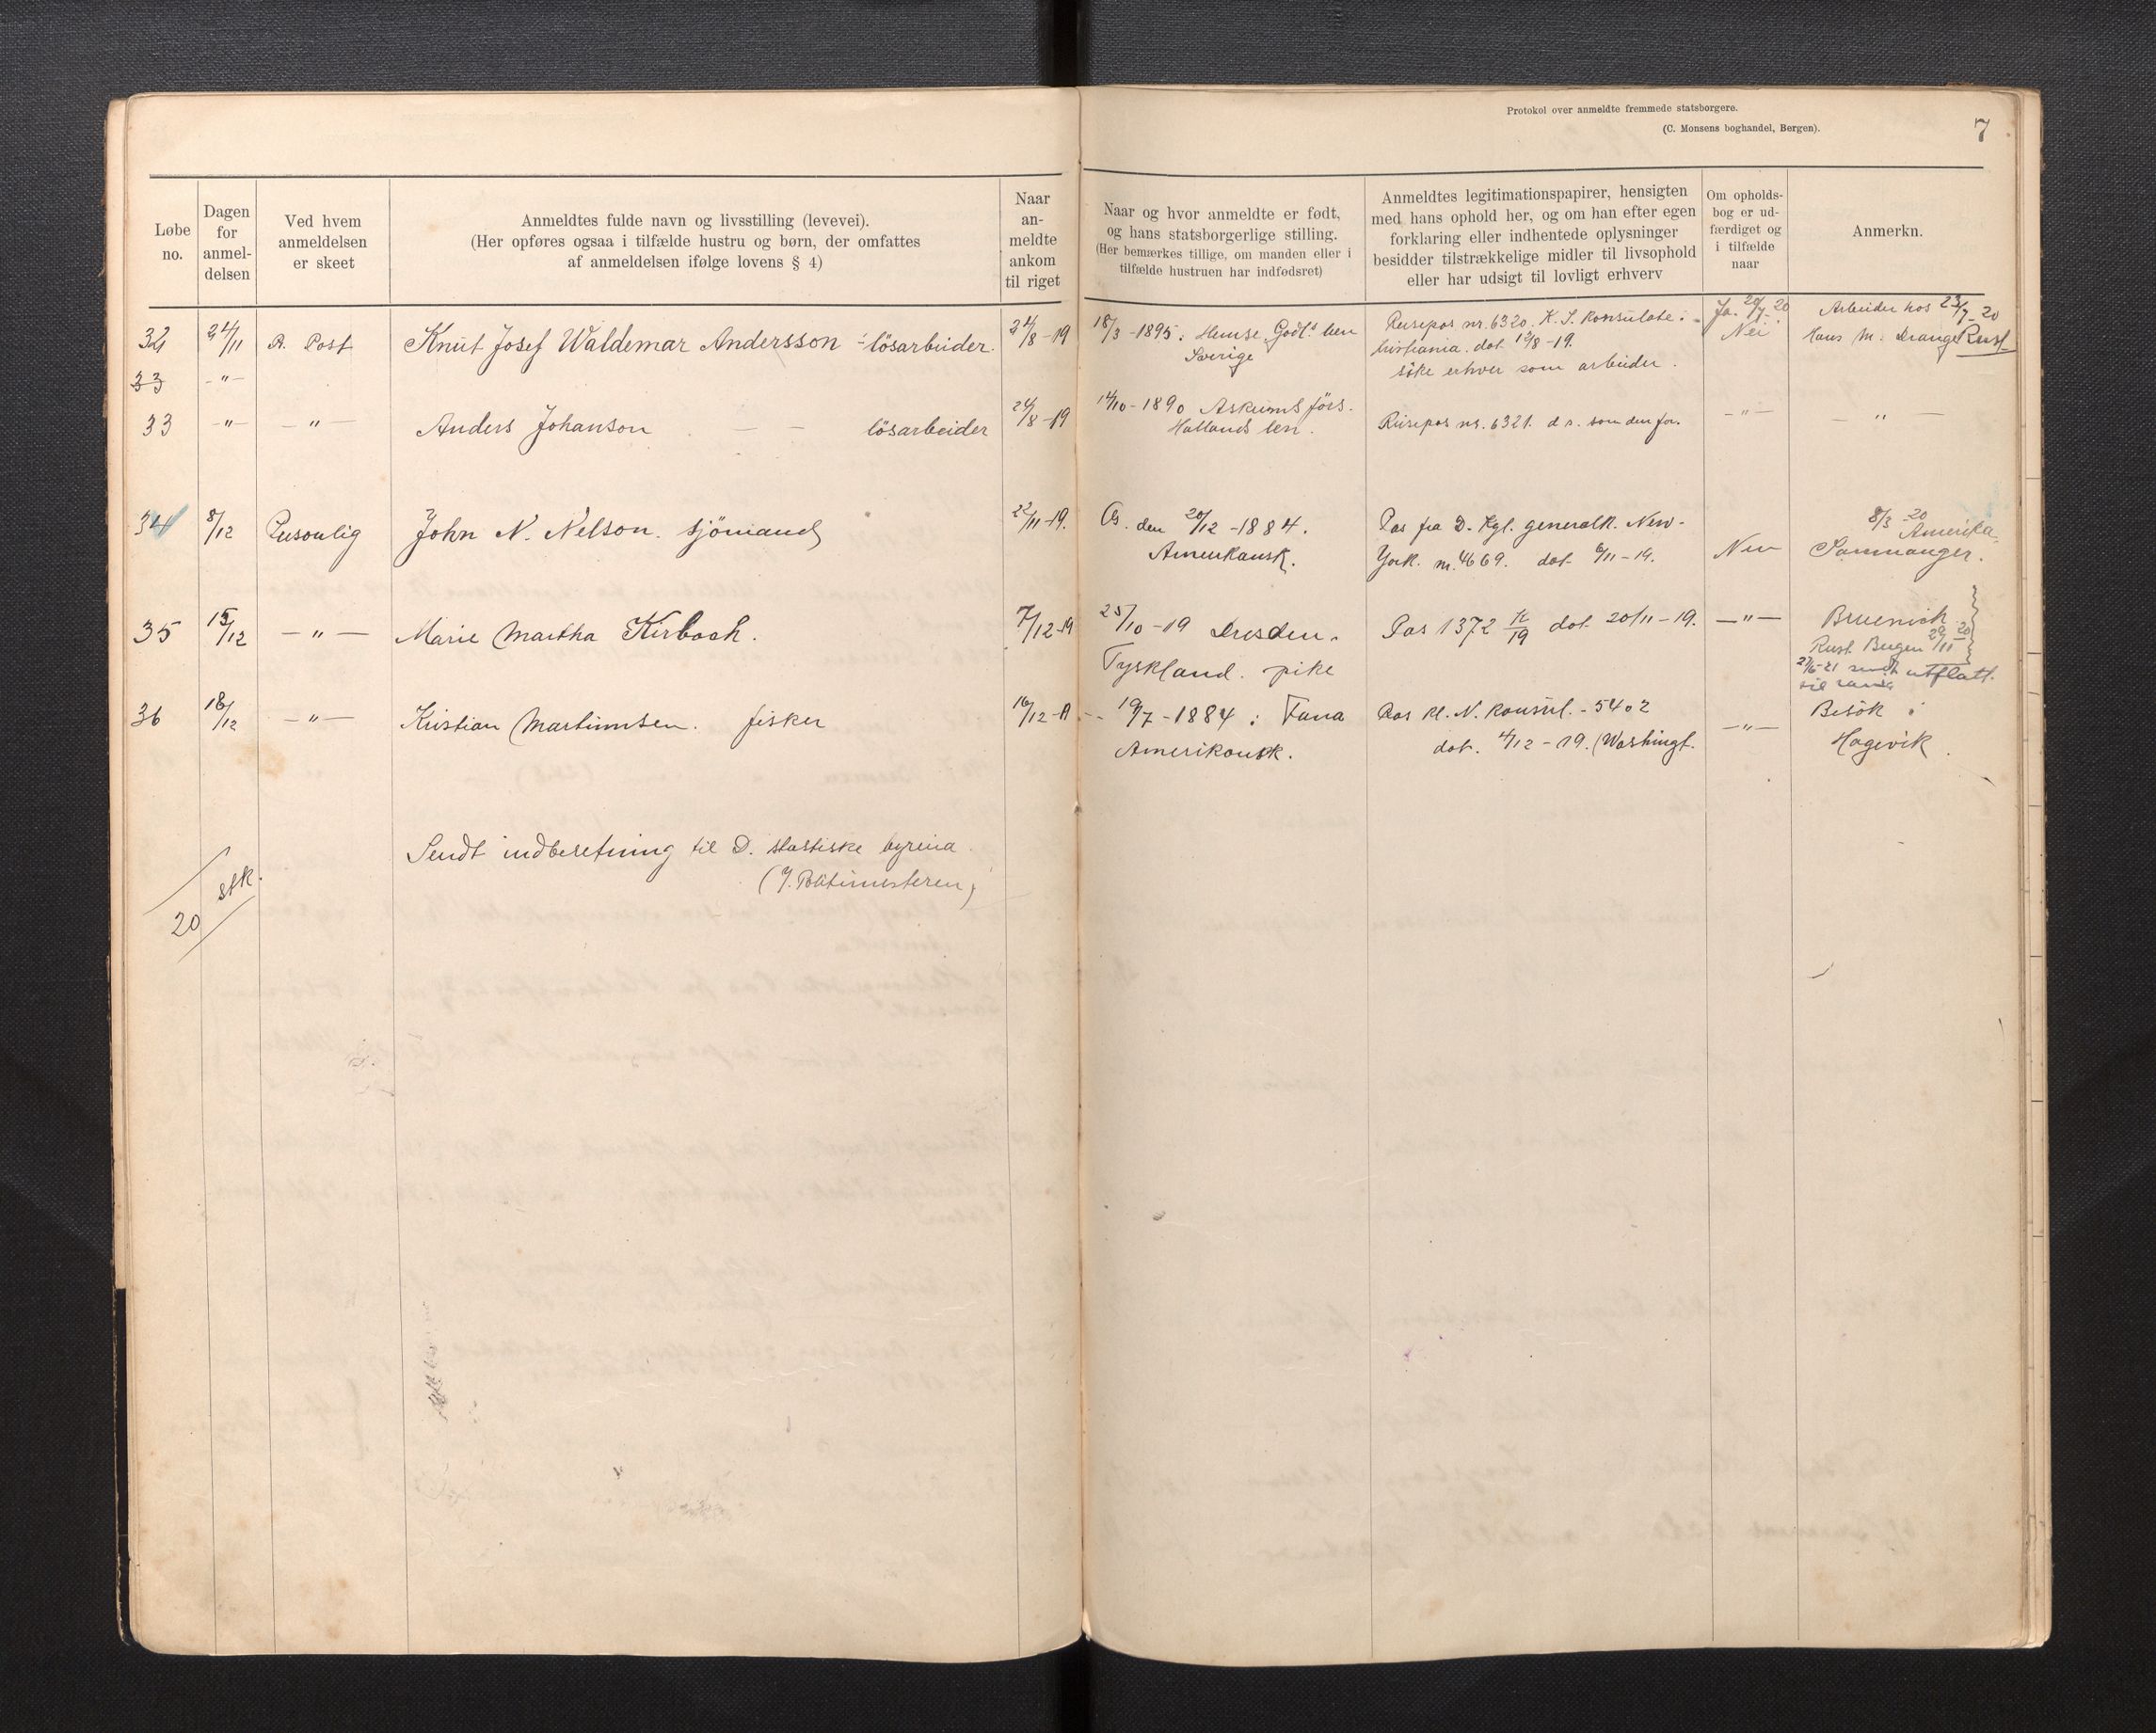 Protokol over anmeldte fremmede statsborgere.
(C. Monsens boghandel, Bergen).
7
Løbe no.
Dagen for anmel-delsen
Ved hvem anmeldelsen er skeet
Anmeldtes fulde navn og livsstilling (levevei).
(Her opføres ogsaa i tilfælde hustru og børn, der omfattes
af anmeldelsen ifølge lovens § 4)
Naar an-meldte ankom til riget
Naar og hvor anmeldte er født,
og hans statsborgerlige stilling.
(Her bemærkes tillige, om manden eller i
tilfælde hustruen har indfødsret)
Anmeldtes legitimationspapirer, hensigten
med hans ophold her, og om han efter egen
forklaring eller indhentede oplysninger
besidder tilstrækkelige midler til livsophold
eller har udsigt til lovligt erhverv
Om opholds-bog er ud-færdiget og i tilfælde naar
Anmerkn.
32 24/11 P. Post Knut Josef Waldemar Andersson - lösarbeider. 24/8-19 18/3-1895 i Hemse, Sverige
Reisepas nr. 6320. K. S. Konsulate i
dat. 19/8-19.
söke erhver som arbeider.
Nei
Arbeider hos 23/7-20
Hans M.
33 -"-
33 -"- -"- Anders Johanson - - lösarbeider 24/8-19 14/10-1890
Hallands len.
Reisepas nr. 6321. -"- -"-
34 8/12 Personlig John N. Nelson. sjömand 22/11-19. den 20/12-1884.
Amerikansk.
Pas fra D. Kgl. generalk. New-
York. nr. 4669. dat. 6/11-19.
Nei
8/3-20
Amerika.
Samnanger.
35 15/12 -"- Marie Martha Kirbach. 7/12-19 25/10-19 Dresden.
Tyskland. pike
Pas 1372 K/19 dat. 20/11-19. -"-
Bergen 29/11 20
utflatt.
36 18/12 -"- Kristian Martinusen. fisker 16/12-19 19/7-1884 i Fana
Amerikansk.
Pas Kl. N. Konsul. - 5402
dat. 4/12-19. (Washingt.
-"-
Besök i
Hagevik.
Sendt indberetning til D. statiske byreua.
(J. Politimesteren)
20 stk.